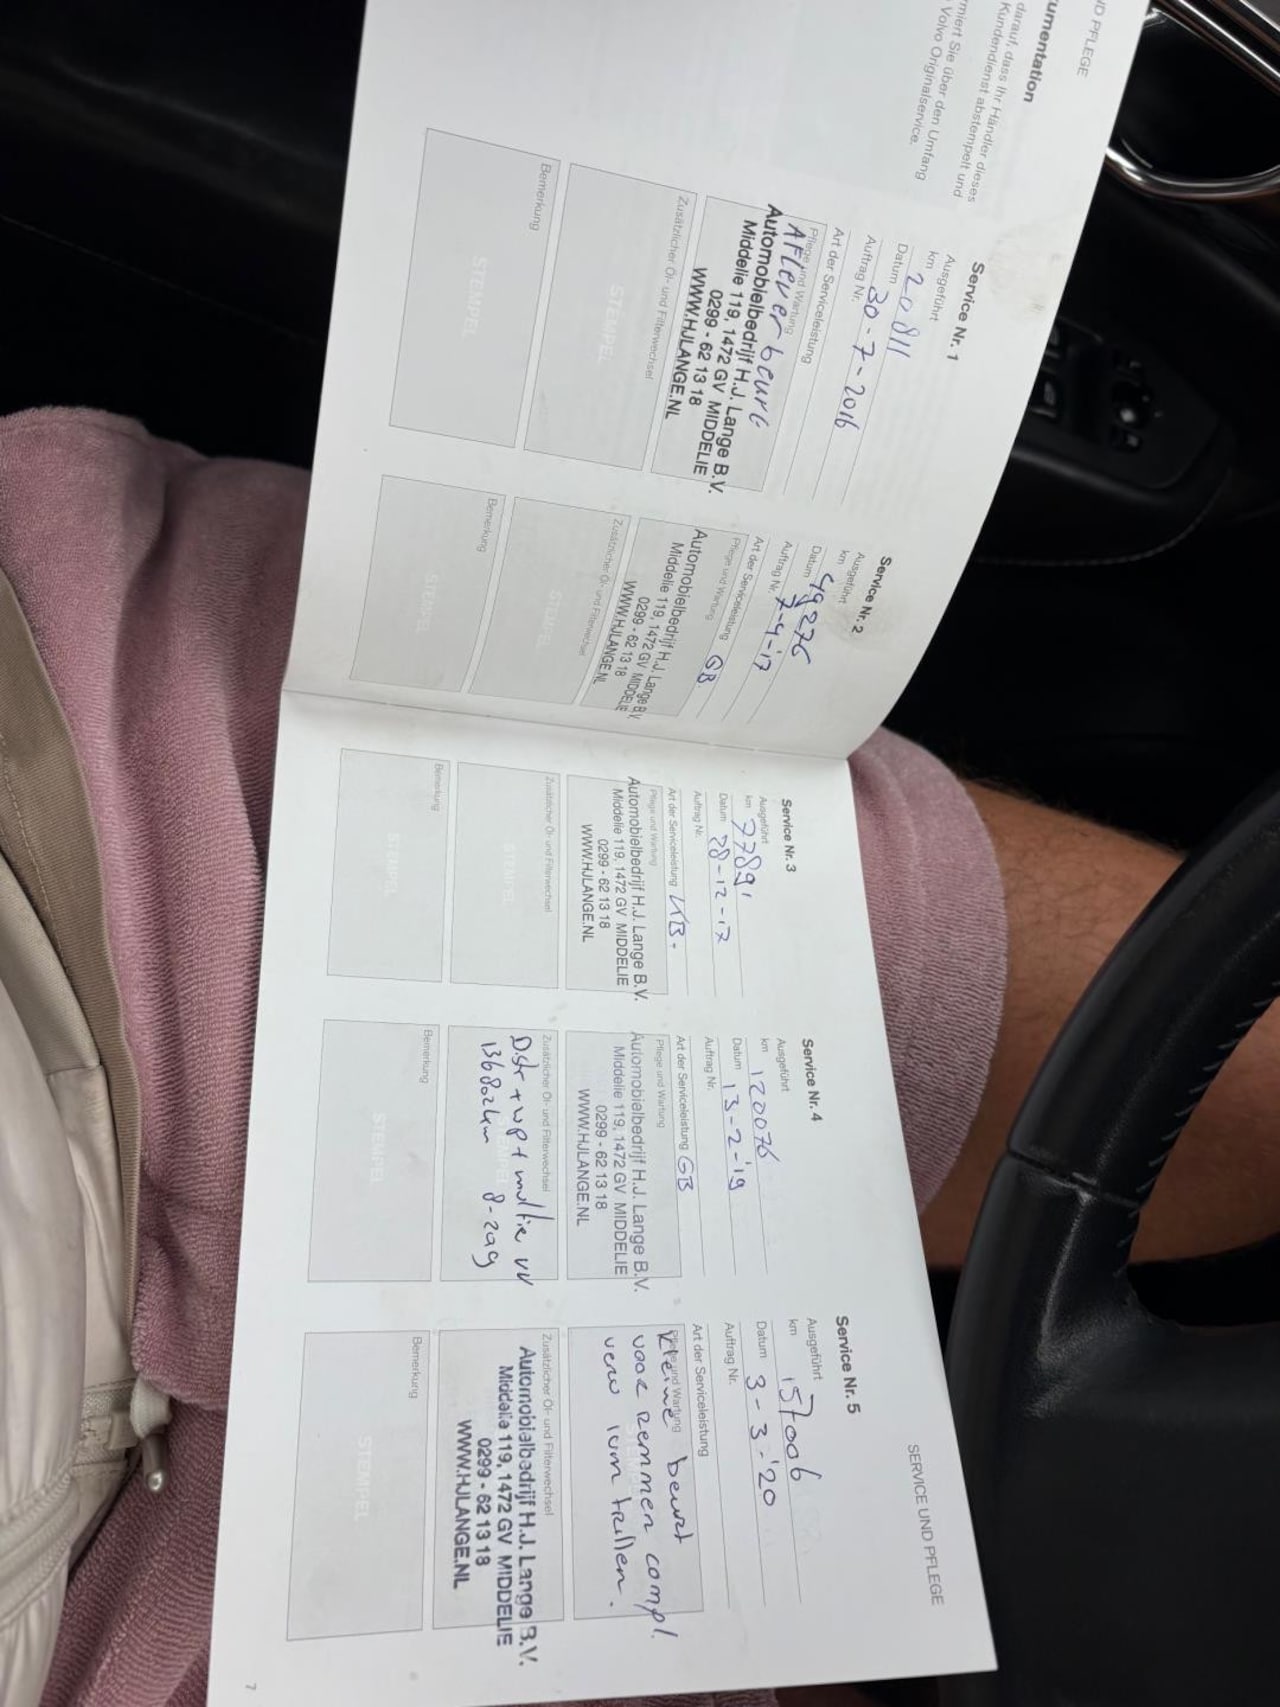 ND PFLEGE
umentation
darauf, dass Ihr Händler dieses
Kundendienst abstempelt und
rmiert Sie über den Umfang
Volvo Originalservice.
Service Nr. 1
Ausgeführt
km 20811
Datum 30-7-2016
Auftrag Nr.
Art der Serviceleistung
Pflege und Wartung
Aflever beurt
Automobielbedrijf H.J. Lange B.V.
Middelie 119, 1472 GV MIDDELIE
0299 - 62 13 18
WWW.HJLANGE.NL
Zusätzlicher Öl- und Filterwechsel
STEMPEL
Bemerkung
STEMPEL
Service Nr. 2
Ausgeführt
km 49276
Datum 7-4-'17
Auftrag Nr.
Art der Serviceleistung GB.
Pflege und Wartung
Automobielbedrijf H.J. Lange B.V.
Middelie 119, 1472 GV MIDDELIE
0299 - 62 13 18
WWW.HJLANGE.NL
Zusätzlicher Öl- und Filterwechsel
STEMPEL
Bemerkung
STEMPEL
SERVICE UND PFLEGE
Service Nr. 3
Ausgeführt
km 77891
Datum 28-12-17
Auftrag Nr.
Art der Serviceleistung KB-
Pflege und Wartung
Automobielbedrijf H.J. Lange B.V.
Middelie 119, 1472 GV MIDDELIE
0299 - 62 13 18
WWW.HJLANGE.NL
Zusätzlicher Öl- und Filterwechsel
STEMPEL
Bemerkung
STEMPEL
Service Nr. 4
Ausgeführt
km 120076
Datum 13-2-'19
Auftrag Nr.
Art der Serviceleistung GB
Pflege und Wartung
Automobielbedrijf H.J. Lange B.V.
Middelie 119, 1472 GV MIDDELIE
0299 - 62 13 18
WWW.HJLANGE.NL
Zusätzlicher Öl- und Filterwechsel
Distr + wp + multie vv
136802km
STEMPEL
Bemerkung
STEMPEL
Service Nr. 5
Ausgeführt
km 157006
Datum 3-3-'20
Auftrag Nr.
Art der Serviceleistung
Pflege und Wartung
Kleine beurt
voor remmen compl.
verv ivm trillen.
Zusätzlicher Öl- und Filterwechsel
Automobielbedrijf H.J. Lange B.V.
Middelie 119, 1472 GV MIDDELIE
0299 - 62 13 18
WWW.HJLANGE.NL
Bemerkung
STEMPEL
7